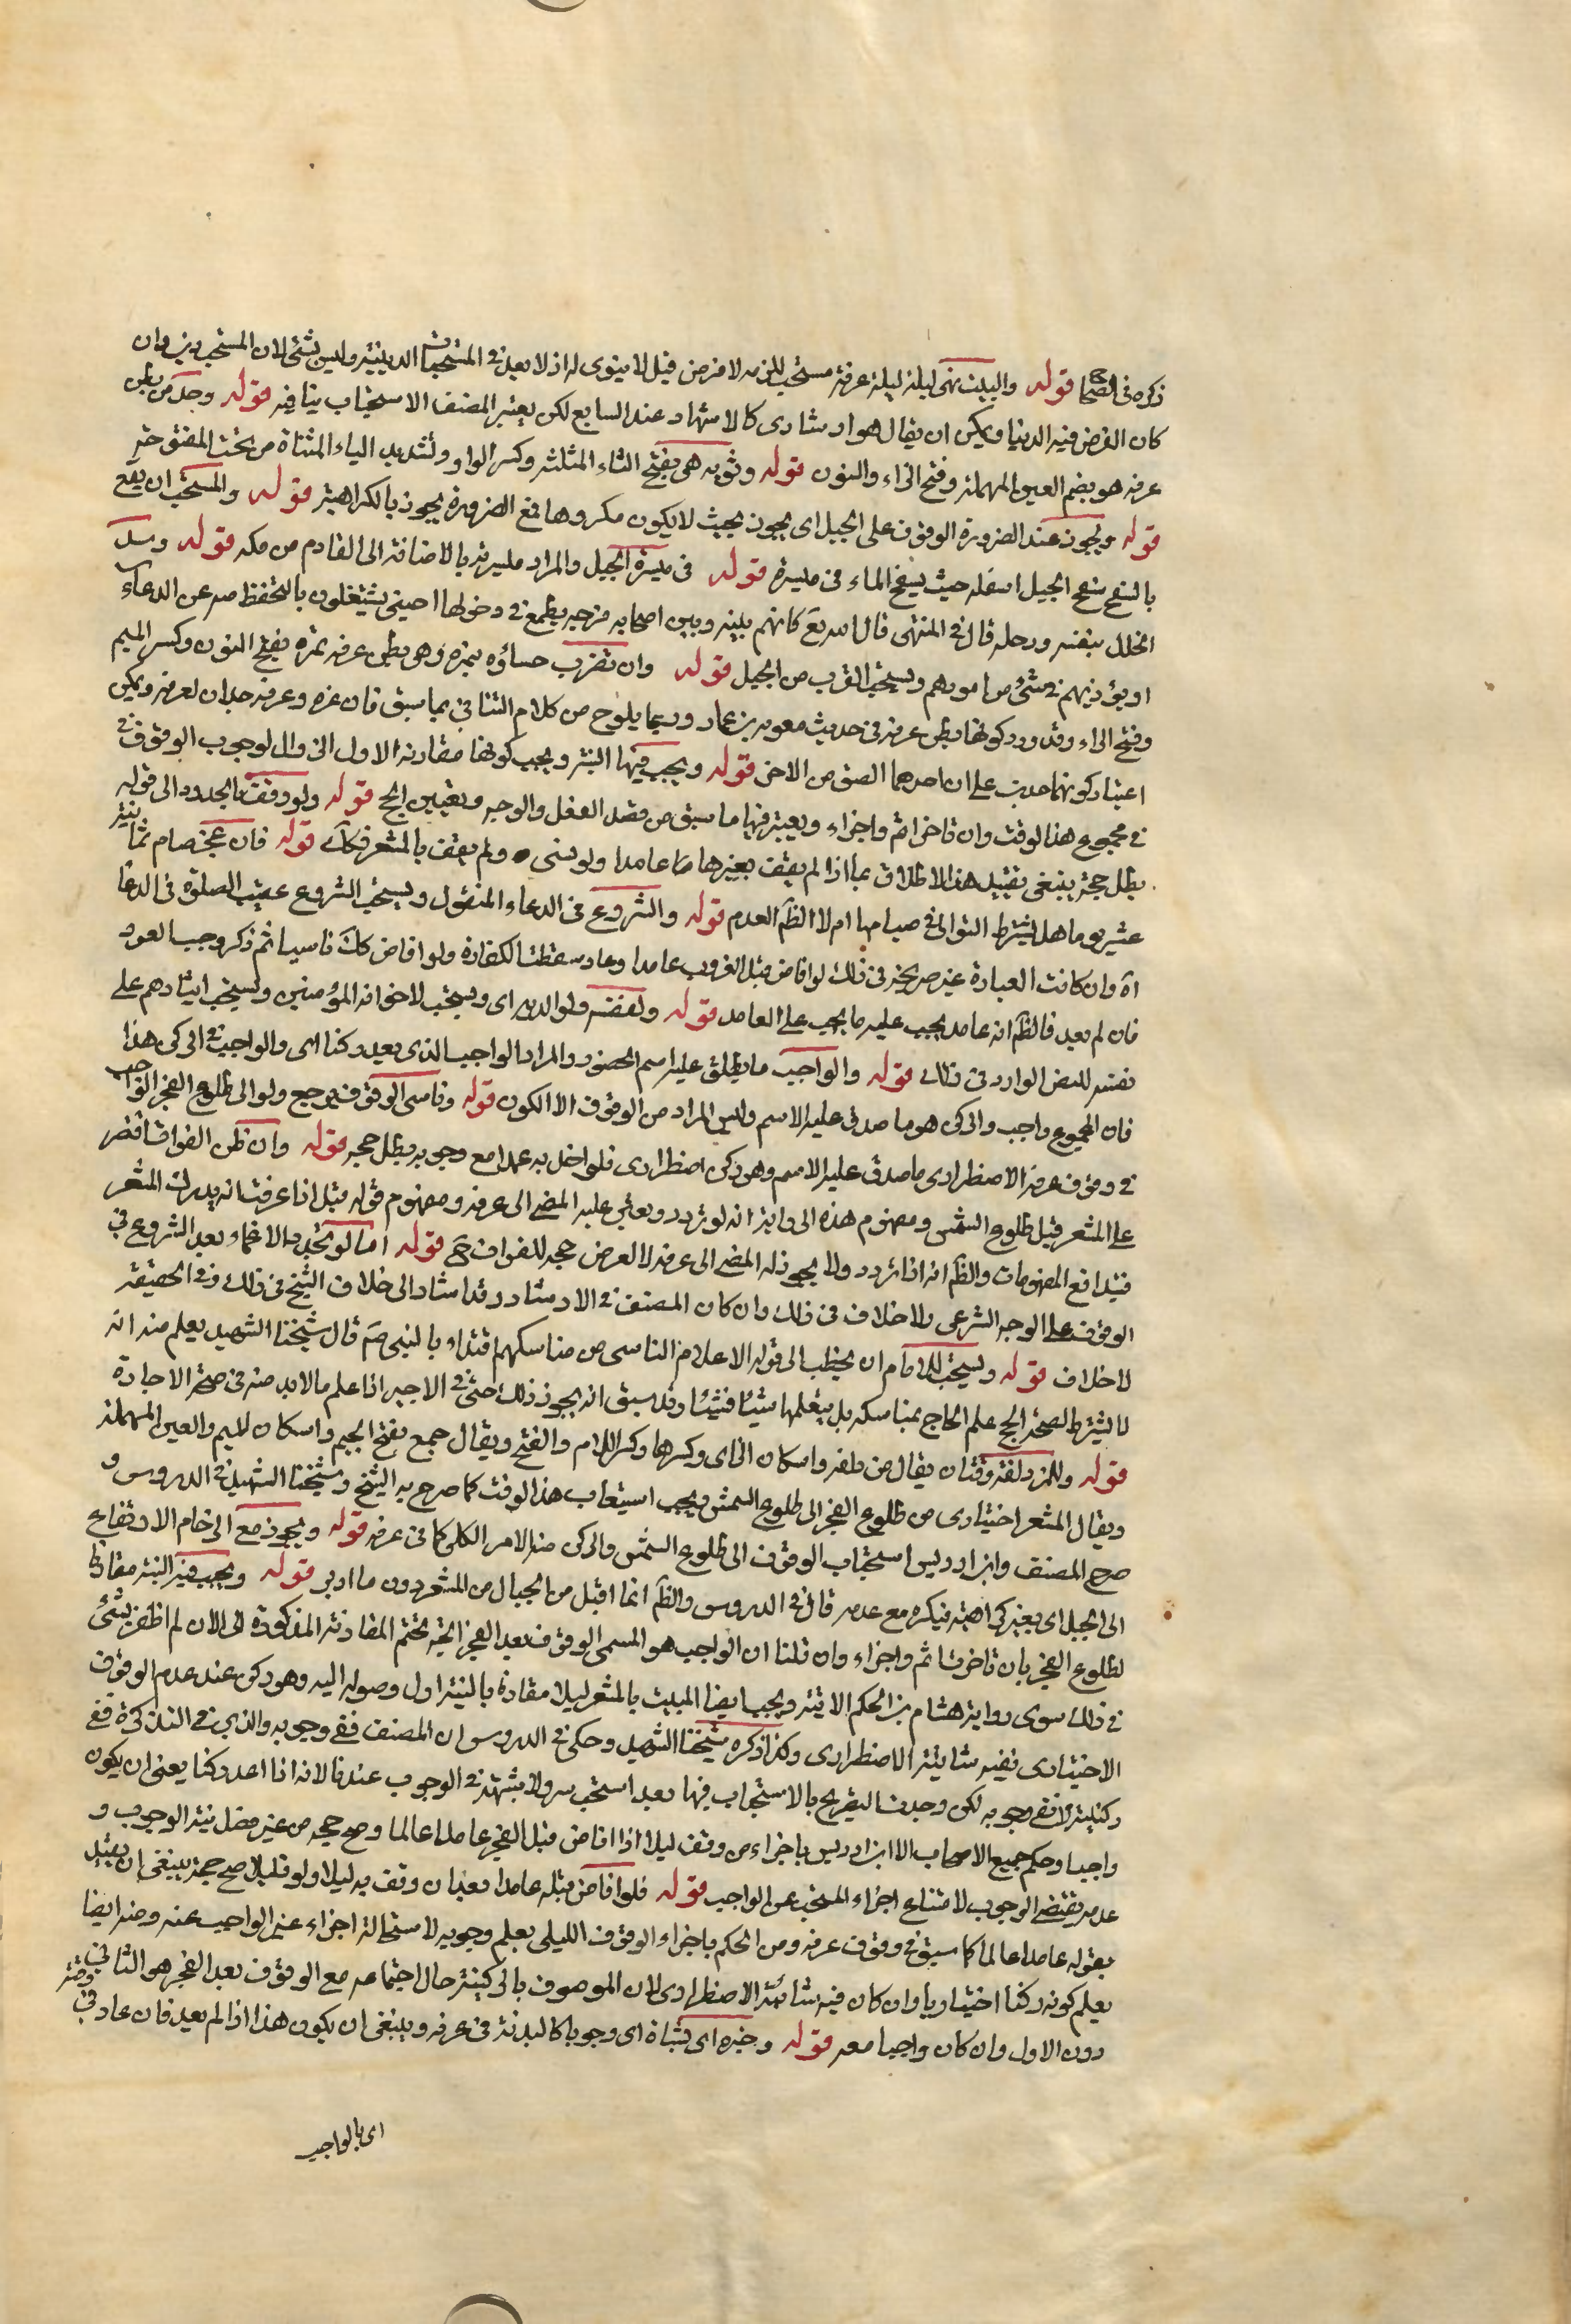 ذكره في الصحاح قوله والمبيت بمنى ليلة عرفة مستحب للترفه لا فرض قيل لا ينوى له اذ لا يعد في المستحبات الدينية وليس بشئ لان المستحب دينى وان
كان الغرض فيه الدنيا ويمكن ان يقال هو ارشادى كالاشهاد عند البايع لكن يعتبر المصنف الاستحباب ينافيه قوله وحد من بطن
عرنه هو بضم العين المهملة وفتح الراء والنون قوله وثوية هى بفتح الثاء المثلثة وكسر الواو وتشديد الياء المثناة من تحت المفتوحة
قوله ويجوز عند الضرورة الوقوف على الجبل اى يجوز بحيث لا يكون مكروها فمع الضرورة يجوز بالكراهية قوله والمستحب ان يقع
بالسفح سفح الجبل اسفله حيث يسفح الماء في ميسرة قوله في ميسرة الجبل والمراد ميسرته بالاضافة الى القادم من مكه قوله وسد
الخلل بنفسه ورحله قال في المنتهى قال لله تع كانهم بينه وبين اصحابه فرجه يطمع في دخولها احينى يشتغلون بالتحفظ منه عن الدعاء
او يؤذيهم في شئ من امورهم ويستحب القرب من الجبل قوله وان تضرب خباؤه بنمرة وهى بطن عرنه نمره بفتح النون وكسر الميم
وفتح الراء وقد ورد كونها بطن عرنه في حديث معويه بن عمار وربما يلوح من كلام الثنافي بما سبق فان نمره وعرنه حدان لعرفه ويمكن
اعتبار كونهما حدين على ان احدهما الصق من الاخر قوله ويجب فيها النية ويجب كونها مقارنه الاول الزوال لوجوب الوقوف في
في مجموع هذا الوقت وان تاخر اثم واجزاء ويعتبر فيها ما سبق من قصد الفعل والوجه وتعيين الحج قوله ولو وقف بالحدود الى قوله
بطل حجه ينبغي تقييد هذا الاطلاق بما اذا لم يقف بغيرها عامدا ولو نسى ولم يقف بالمشعر فكك قوله فان عجز صام ثمانية
عشر يوما هل يشترط التوالي في صيامها ام لا الظ العدم قوله والشروع في الدعاء المنقول ويستحب الشروع عقيب الصلوة في الدعاء
اه وان كانت العبارة غير صريحة في ذلك لو افاض قبل الغروب عامدا وعاد سقطت الكفارة ولو افاض كك ناسيا ثم ذكر وجب العود
فان لم يعد فالظ انه عامد يجب عليه ما يجب على العامد قوله ولنفسه ولوالديه اى ويستحب لاخوانه المؤمنين ويستحب ايثارهم على
نفسه للنص الوارد في ذلك قوله والواجب ما يطلق عليه اسم الحضور والمراد الواجب الذى يعد ركنا اى والواجب في الركن هذا
فان المجموع واجب والركن هو ما صدق عليه الاسم وليس المراد من الوقوف الا الكون قوله وناسى الوقوف يرجع ولو الى طلوع الفجر الواجب
في وقوف عرفه الاضطرارى ما صدق عليه الاسم وهو ركن اضطرارى فلو اخل به عمدا مع وجوبه بطل حجه قوله وان ظن الفوات اقتصر
على المشعر قبل طلوع الشمس ومفهوم هذه الرواية انه لو تردد وتعين عليه المضي الى عرفه ومفهوم قوله قبل اذا عرفت انه يدرك المشعر
فتدافع المفهومات والظ انه اذا تردد ولا يجوز له المضي الى عرفه لا لعرض حجه للفوات ح قوله اما لو تجدد الاغماء بعد الشروع في
الوقوف على الوجه الشرعى ولا خلاف في ذلك وان كان المصنف في الارشاد قد اشار الى خلاف الشيخ في ذلك وفي الحقيقة
لا خلاف قوله ويستحب للامام ان يخطب الى قوله الاعلام الناس من مناسكهم اقتداء بالنبي ص قال شيخنا الشهيد يعلم منه انه
لا يشترط لصحة الحج علم الحاج بمناسكه بل يتعلمها شيئا فشيئا وقد سبق انه يجوز ذلك حتى في الاجير اذا علم ما لابد منه في صحة الاجارة
قوله وللمزدلفة وقتان يقال من دلف واسكان الزاى وكسرها وكسر اللام والفتح ويقال جمع بفتح الجيم واسكان الميم والعين المهملة
ويقال المشعر اختيارى من طلوع الفجر الى طلوع الشمس ويجب استيعاب هذا الوقت كما صرح به الشيخ وشيخنا الشهيد في الدروس و
صرح المصنف وابن ادريس استحباب الوقوف الى طلوع الشمس والركن منه الامر الكلى كما في عرفه قوله ويجوز مع الزحام الارتفاع
الى الجبل اى بغير كراهية فيكره مع عدمه قال في الدروس والظ انما اقبل من الجبال من المشعر دون ما ادبر قوله ويجب فيه النية مقارنا
لطلوع الفجر بان تاخرت اثم واجزاء وان قلنا ان الواجب هو المسمى الوقوف بعد الفجر اتجه تحتم المقارنة المذكورة الى الان لم اظفر بشئ
في ذلك سوى رواية هشام بن الحكم الاتية ويجب ايضا المبيت بالمشعر ليلا مقارنا بالنية اول وصوله اليه وهو ركن عند عدم الوقوف
الاختيارى نفيه شائبة الاضطرارى وكذا ذكره شيخنا الشهيد وحكى في الدروس ان المصنف ففى وجوبه والذي في التذكرة نفى
ركنيته لا نفى وجوبه لكن وجدت التصريح بالاستحباب فيها بعد استحب سه ولا شبهة في الوجوب عندنا لانه اذا اعد ركنا يعنى ان يكون
واجبا وحكم جميع الاصحاب الا ابن ادريس باجزاء من وقف ليلا اذا افاض قبل الفجر عامدا عالما وصح حجه من غير فضل نية الوجوب و
عدمه يقتضى الوجوب لامتناع اجزاء المستحب عن الواجب قوله فلو افاض قبله عامدا بعد ان وقف به ليلا ولو قليلا صح حجه ينبغى ان يقيد
بقوله عامدا عالما كما سبق في وقوف عرفه ومن الحكم باجزاء الوقوف الليلى يعلم وجوبه لاستحالة اجزاء غير الواجب عنه ومنه ايضا
يعلم كونه ركنا اختياريا وان كان فيه شائبة الاضطرارى لان الموصوف بالركنية حال اجتماعه مع الوقوف بعد الفجر هو الثاني
دون الاول وان كان واجبا معه قوله وجبره اى بشاة اى وجوبا كالبدنة في عرفه وينبغى ان يكون هذا اذا لم يعد فان عاد في
اى بالواجب